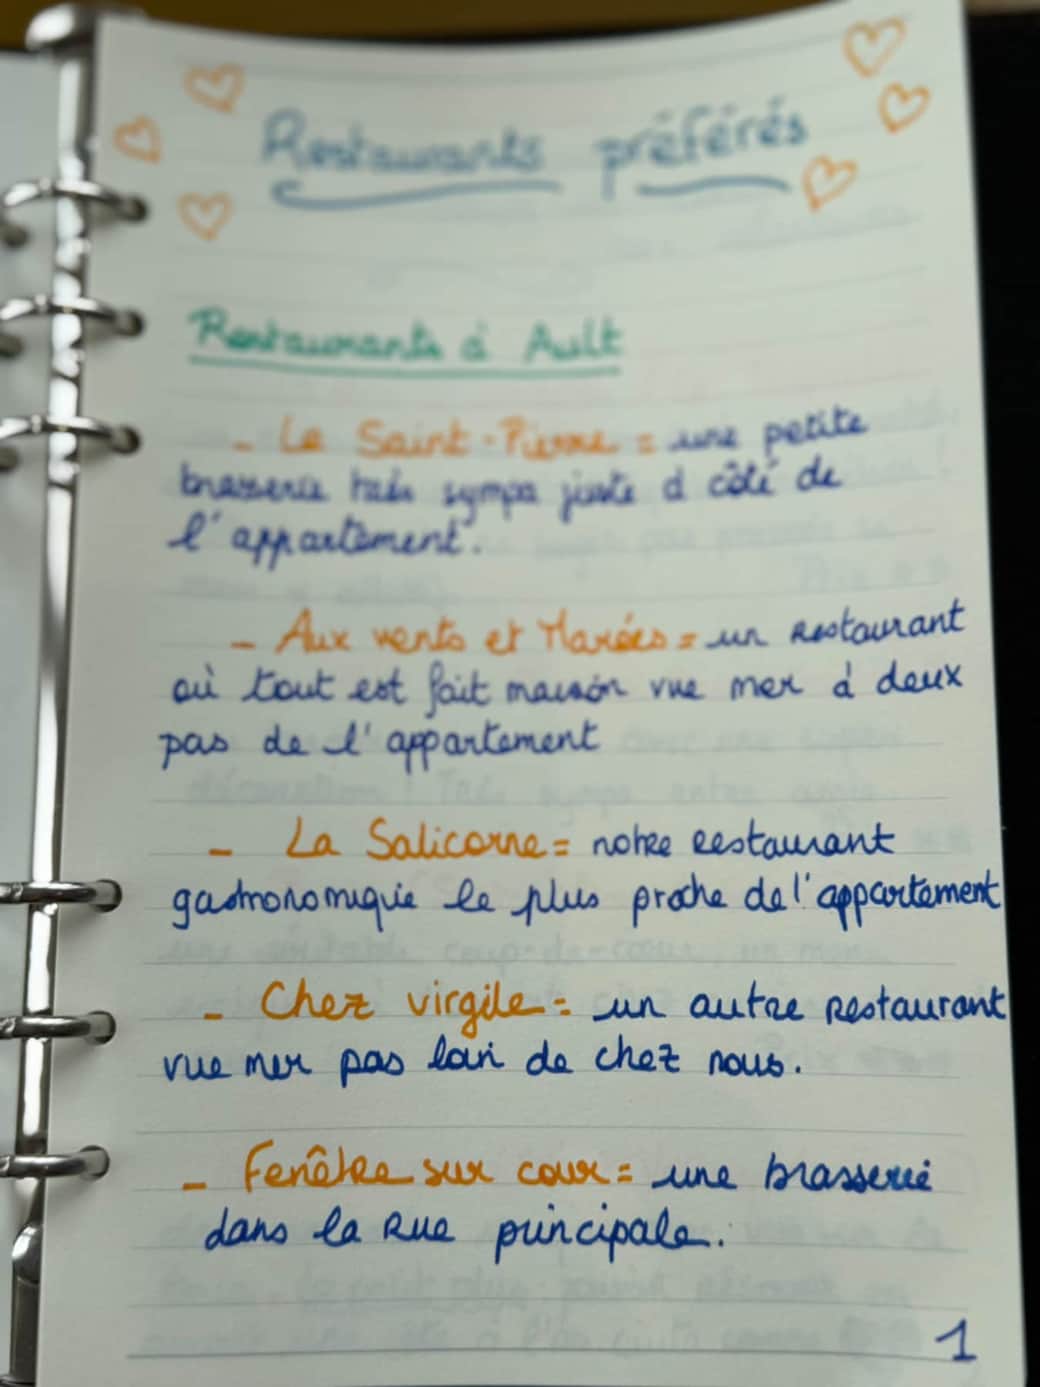 Restaurants préférés
Restaurants à Ault
- Le Saint-Pierre = une petite
brasserie très sympa juste à côté de
l'appartement.
- Aux vents et Marées = un restaurant
où tout est fait maison vue mer à deux
pas de l'appartement
- La Salicorne = notre restaurant
gastronomique le plus proche de l'appartement
- Chez virgile = un autre restaurant
vue mer pas loin de chez nous.
- Fenêtre sur cour = une brasserie
dans la rue principale.
1